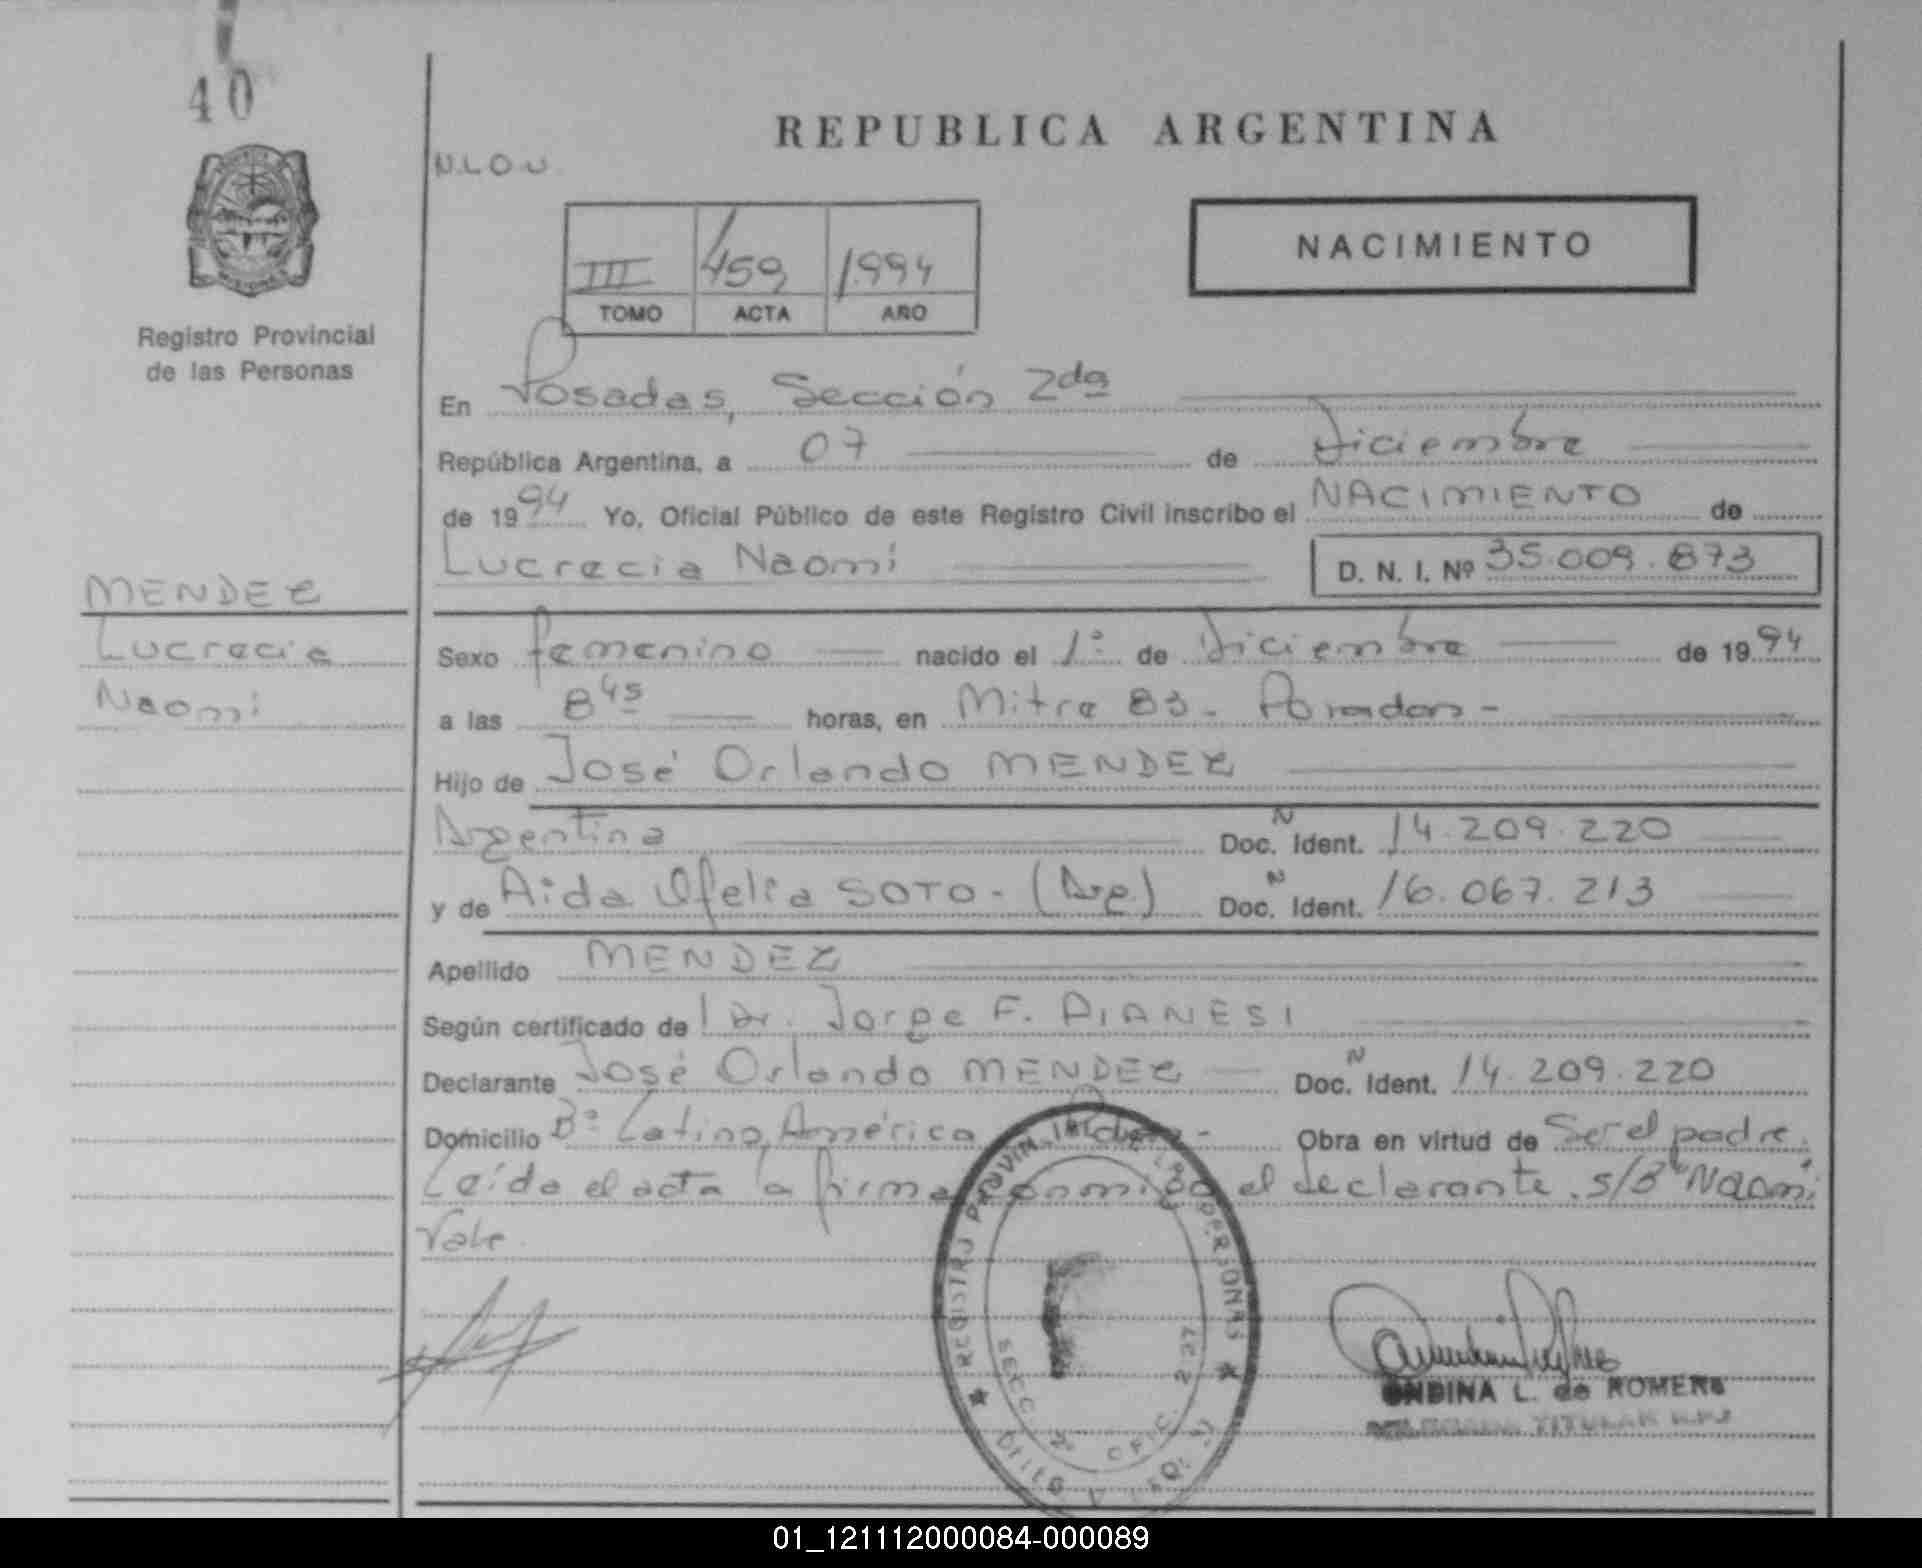 40
REPUBLICA ARGENTINA
N.L.O.U.
NACIMIENTO
III 459 1994
TOMO ACTA AÑO
Registro Provincial
de las Personas
En Posadas, Sección 2da
República Argentina, a 07 de Diciembre
de 1994 Yo, Oficial Público de este Registro Civil inscribo el NACIMIENTO de
Lucrecia Naomi D. N. I. Nº 35.009.873
MENDEZ
Lucrecia
Naomi
Sexo femenino nacido el 1º de Diciembre de 1994
a las 8 45 horas, en Mitre 83 - Posadas -
Hijo de José Orlando MENDEZ
Argentina Doc. N Ident. 14.209.220
y de Aida Ofelia SOTO - (Arg.) Doc. N Ident. 16.067.213
Apellido MENDEZ
Según certificado de Dr. Jorge F. PIANESI
Declarante José Orlando MENDEZ Doc. N Ident. 14.209.220
Domicilio Bº Latino América Obra en virtud de Ser el padre.
Leída el acta la firma conmigo el declarante. s/Bº "Naomi
Vale
REGISTRO PROVINCIAL DE LAS PERSONAS
SECC. 2º OFIC.
ONDINA L. de ROMERO
TITULAR
01_121112000084-000089